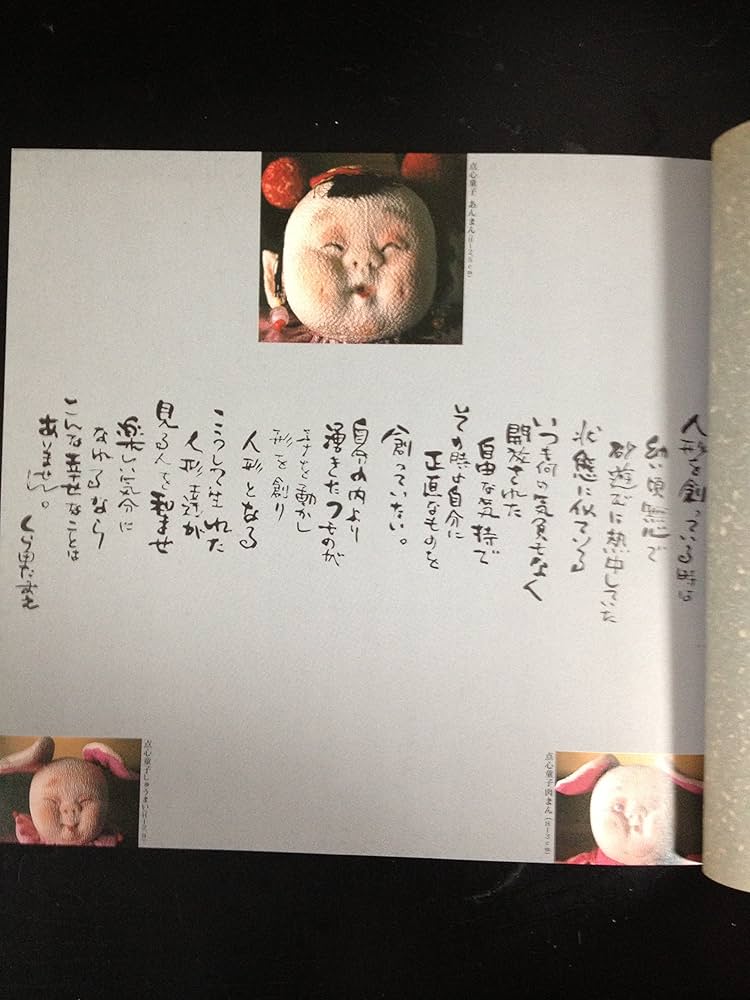 点心童子 あんまん
人形を創っている時は
幼い頃無心で
砂遊びに熱中していた
状態に似ている
いつも何の気負もなく
開放された
自由な気持で
その時の自分に
正直なものを
創っていたい。
自分の内より
湧きたつものが
手を動かし
形を創り
人形となる
こうして生れた
人形達が
見る人を和ませ
楽しい気分に
なれるなら
こんな幸せなことは
ありません。
点心童子 肉まん
点心童子 しゅうまい